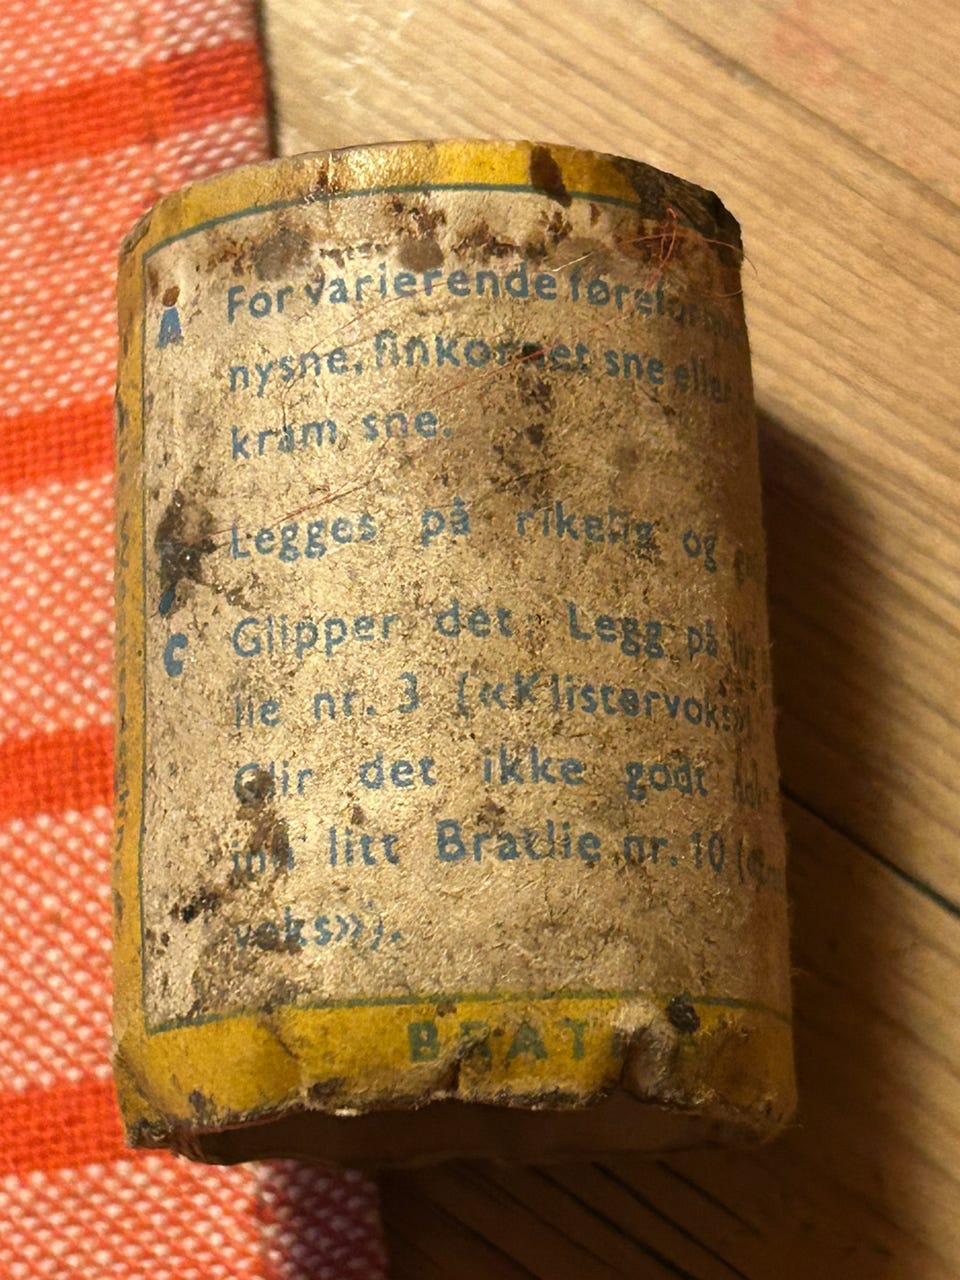 A For varierende
nysne, finkornet sne eller
kram sne.
Legges på rikelig og
C Glipper det. Legg på
lie nr. 3 («Klistervoks»)
Glir det ikke godt
inn litt Bratlie nr. 10
voks»).